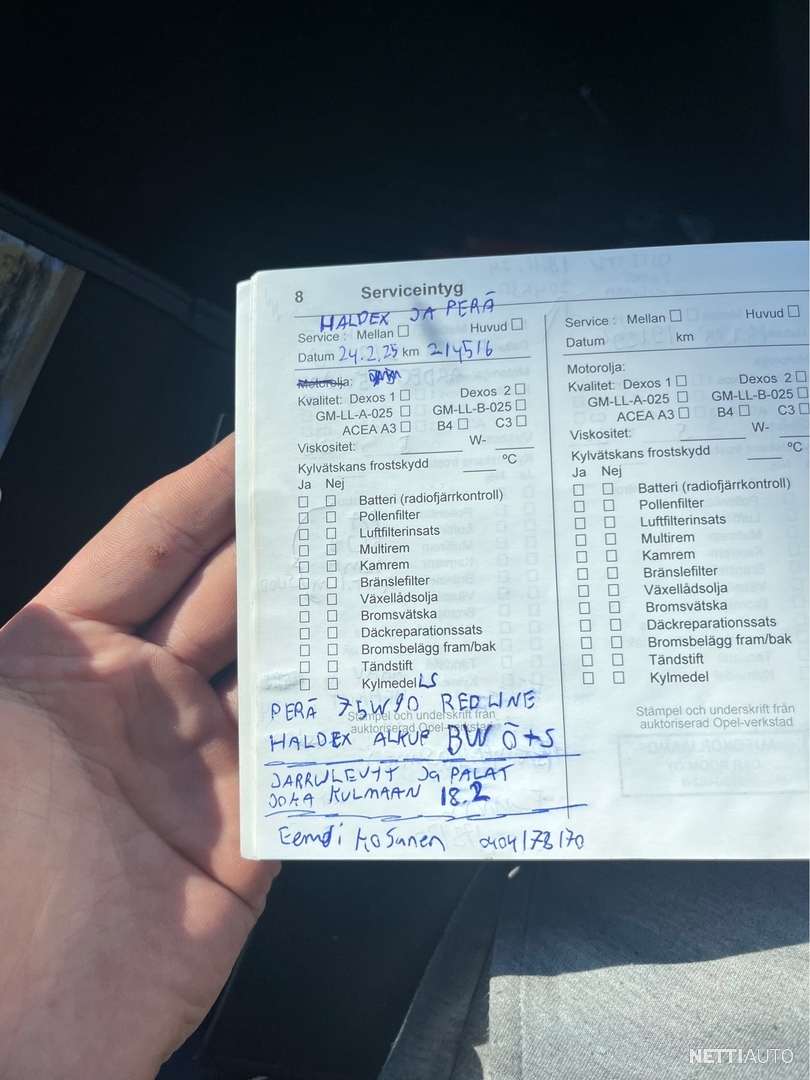 8 Serviceintyg
HALDEX JA PERÄ
Service: Mellan Huvud
Datum 24.2.25 km 214516
Motorolja:
Kvalitet: Dexos 1 Dexos 2
GM-LL-A-025 GM-LL-B-025
ACEA A3 B4 C3
Viskositet: W-
Kylvätskans frostskydd °C
Ja Nej
Batteri (radiofjärrkontroll)
Pollenfilter
Luftfilterinsats
Multirem
Kamrem
Bränslefilter
Växellådsolja
Bromsvätska
Däckreparationssats
Bromsbelägg fram/bak
Tändstift
Kylmedel LS
PERÄ 75W90 REDLINE
Stämpel och underskrift från
auktoriserad Opel-verkstad
HALDEX ALKUP BW Ö+S
JARRULEVYT JA PALAT
JOKA KULMAAN 18.2
Kosunen
Service: Mellan Huvud
Datum km
Motorolja:
Kvalitet: Dexos 1 Dexos 2
GM-LL-A-025 GM-LL-B-025
ACEA A3 B4 C3
Viskositet: W-
Kylvätskans frostskydd °C
Ja Nej
Batteri (radiofjärrkontroll)
Pollenfilter
Luftfilterinsats
Multirem
Kamrem
Bränslefilter
Växellådsolja
Bromsvätska
Däckreparationssats
Bromsbelägg fram/bak
Tändstift
Kylmedel
Stämpel och underskrift från
auktoriserad Opel-verkstad
NETTIAUTO